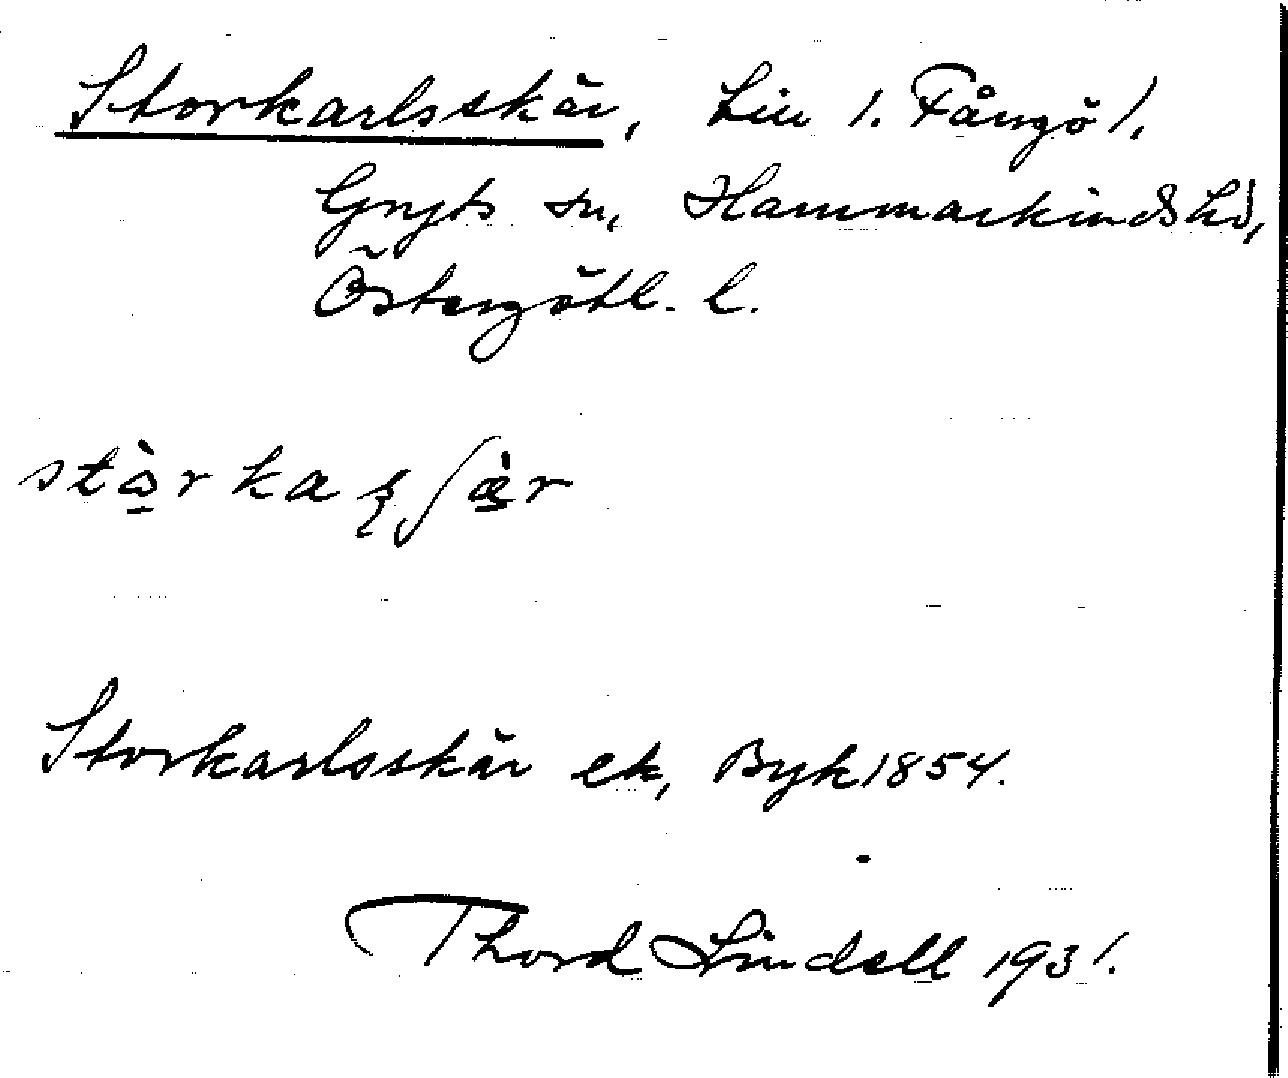 Storkarlsskär, Liu 1. Fångö 1.
Gryts sn, Hammarkinds hd,
Östergötl. l.
stårka ʂ ʃ ær
Storkarlsskär ek, Byk 1854.
Thord Lindell 1931.